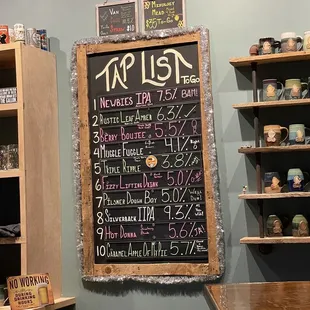 VAN
$25 To-Go
TAP LIST
To Go
1 NEWBIES IPA 7.5% BAM!
2 RUSTIC LEAF AMBER 6.3%
3 BERRY BOUJEE 5.5%
4 MUGGLE FUGGLE 4.4%
5 TRIPLE RIPPLE 3.8%
6 FIZZY LIFTING DRINK 5.0%
7 PILSNER DOUGH BOY 5.0%
8 SILVERBACK IIPA 9.3%
9 HOT DONNA 5.6%
10 CARAMEL APPLE OF MY PIE 5.7%
NO WORKING
DURING